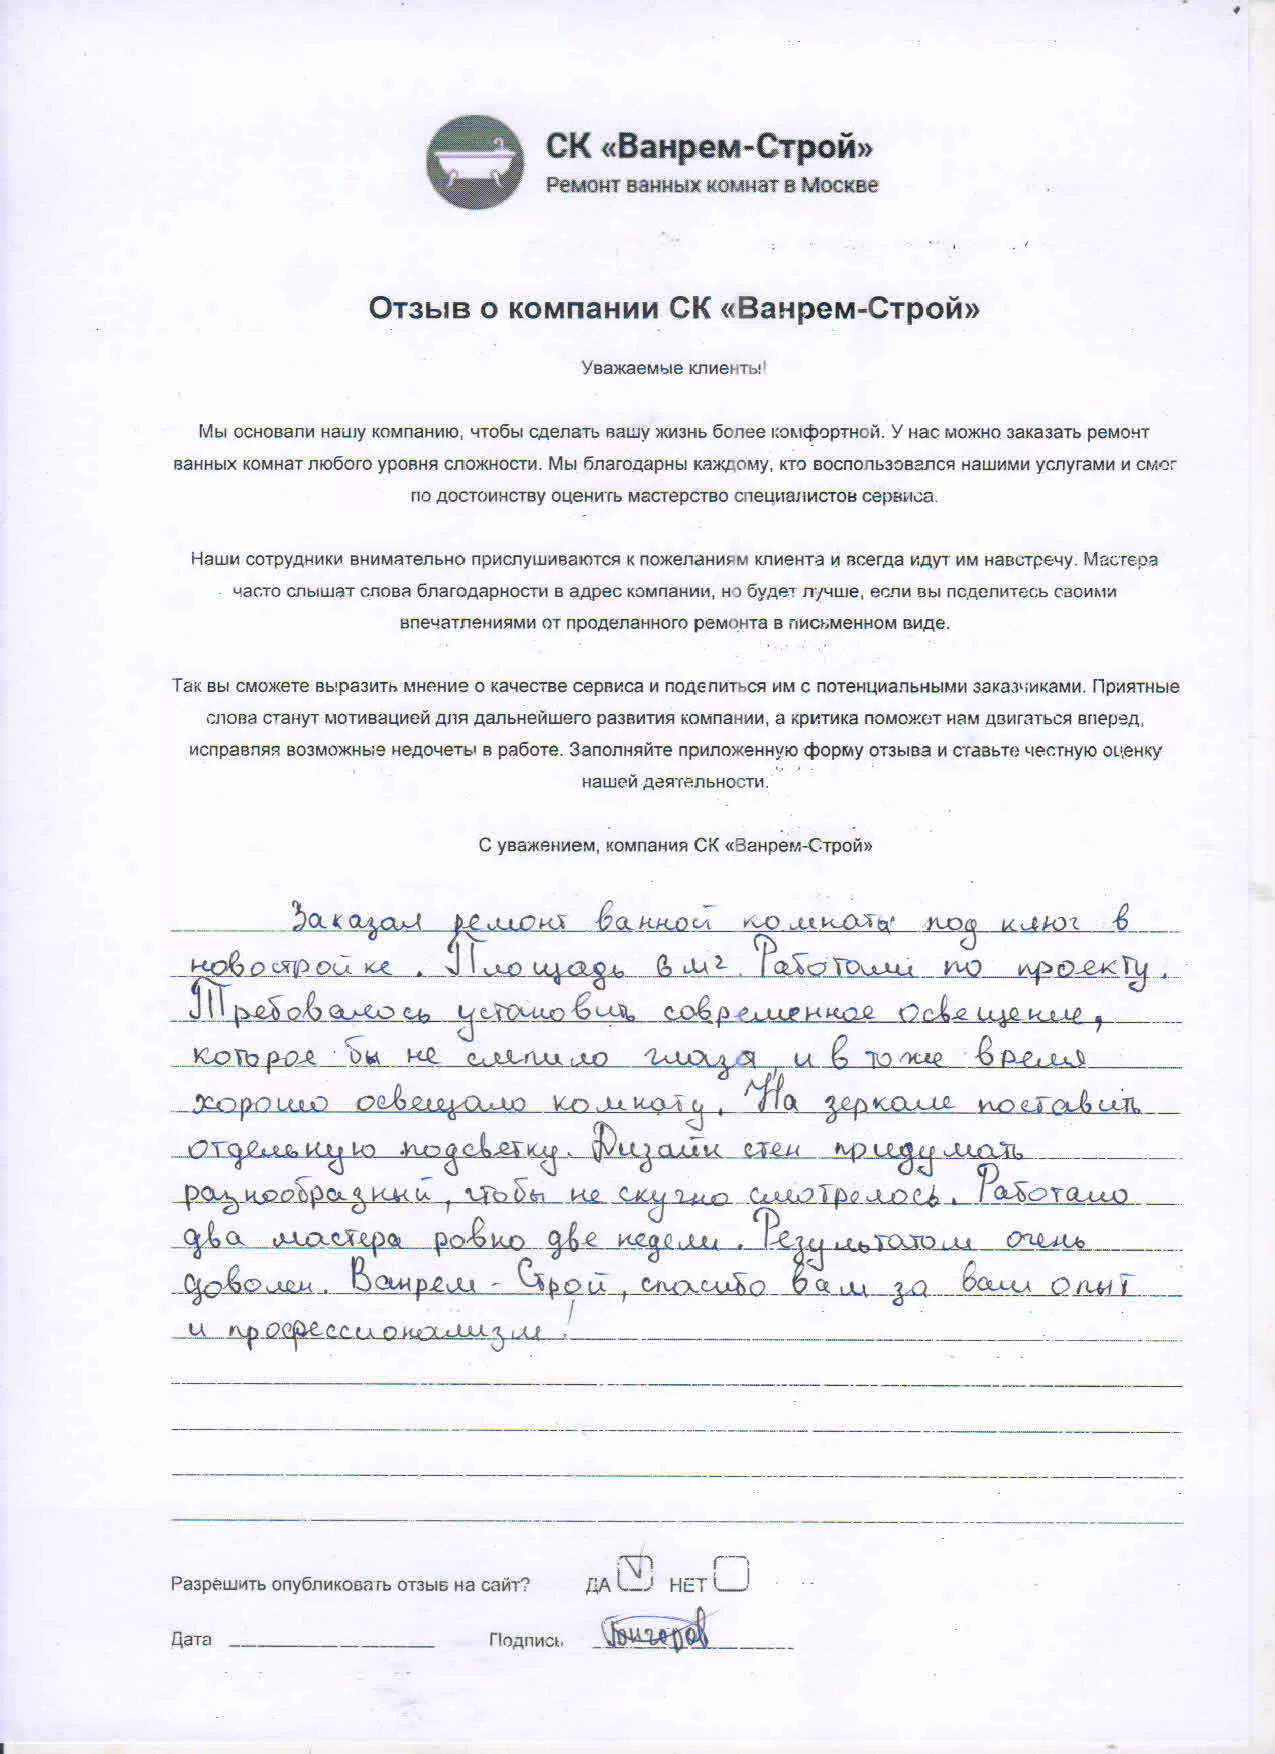 СК «Ванрем-Строй»
Ремонт ванных комнат в Москве
Отзыв о компании СК «Ванрем-Строй»
Уважаемые клиенты!
Мы основали нашу компанию, чтобы сделать вашу жизнь более комфортной. У нас можно заказать ремонт
ванных комнат любого уровня сложности. Мы благодарны каждому, кто воспользовался нашими услугами и смог
по достоинству оценить мастерство специалистов сервиса.
Наши сотрудники внимательно прислушиваются к пожеланиям клиента и всегда идут им навстречу. Мастера
часто слышат слова благодарности в адрес компании, но будет лучше, если вы поделитесь своими
впечатлениями от проделанного ремонта в письменном виде.
Так вы сможете выразить мнение о качестве сервиса и поделиться им с потенциальными заказчиками. Приятные
слова станут мотивацией для дальнейшего развития компании, а критика поможет нам двигаться вперед,
исправляя возможные недочеты в работе. Заполняйте приложенную форму отзыва и ставьте честную оценку
нашей деятельности.
С уважением, компания СК «Ванрем-Строй»
Заказал ремонт ванной комнаты под ключ в
новостройке. Площадь 6 м2. Работали по проекту.
Требовалось установить современное освещение,
которое бы не слепило глаза, и в то же время
хорошо освещало комнату. На зеркале поставить
отдельную подсветку. Дизайн стен придумать
разнообразный, чтобы не скучно смотрелось. Работало
два мастера ровно две недели. Результатом очень
доволен. Ванрем-Строй, спасибо вам за ваш опыт
и профессионализм!
Разрешить опубликовать отзыв на сайт? ДА НЕТ
Дата Подпись